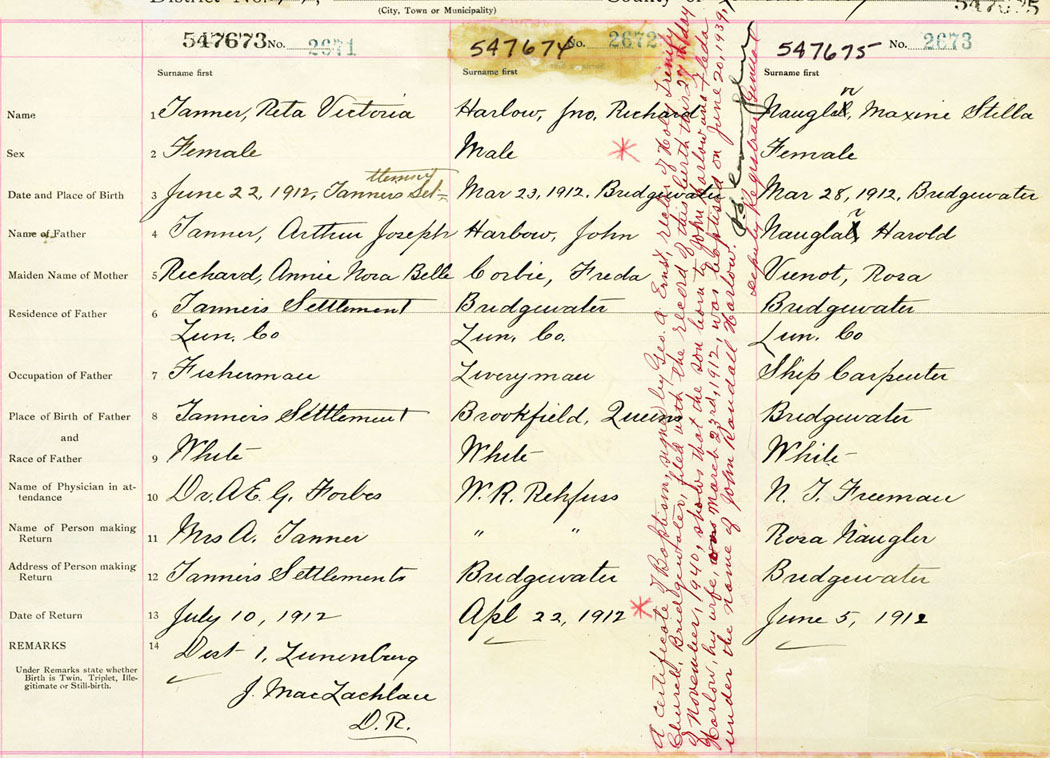 (City, Town or Municipality)
547673 No. 2671 547674 No. 2672 547675 No. 2673
Surname first Surname first Surname first
Name 1 Tanner, Reta Victoria Harlow, Jno. Richard Naugler, Maxine Stella
Sex 2 Female Male * Female
Date and Place of Birth 3 June 22, 1912, Tanners Settlement Mar 23, 1912, Bridgewater Mar 28, 1912, Bridgewater
Name of Father 4 Tanner, Arthur Joseph Harlow, John Naugler, Harold
Maiden Name of Mother 5 Richard, Annie Nora Belle Corbie, Freda Vienot, Rosa
Residence of Father 6 Tanners Settlement Bridgewater Bridgewater
Lun. Co Lun. Co. Lun. Co
Occupation of Father 7 Fisherman Liveryman Ship Carpenter
Place of Birth of Father 8 Tanners Settlement Brookfield, Queens Bridgewater
and
Race of Father 9 White White White
Name of Physician in at-
tendance 10 Dr. A.E. G. Forbes W. R. Rehfuss N. T. Freeman
Name of Person making
Return 11 Mrs A. Tanner " " Rosa Naugler
Address of Person making
Return 12 Tanners Settlements Bridgewater Bridgewater
Date of Return 13 July 10, 1912 Apl 22, 1912 * June 5, 1912
REMARKS 14 Dist 1, Lunenburg
Under Remarks state whether
Birth is Twin, Triplet, Ille-
gitimate or Still-birth.
J. MacLachlan
D. R.
A certificate of Baptism, signed by Geo. A. Ernst, rector of Holy Trinity
Church, Bridgewater, filed with the record of this birth this 27th day
of November, 1940, shows that the son born to John Harlow and Freda
Harlow, his wife, on March 23rd, 1912, was baptised on June 20, 1939,
under the name of John Randall Harlow.
Deputy Registrar General